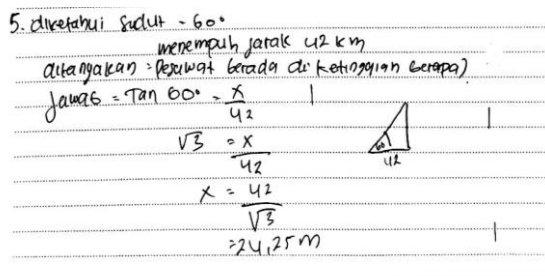 5. diketahui sudut = 60°
menempuh jarak 42 km
ditanyakan = Pesawat berada di ketinggian berapa?
Jawab = Tan 60° = x/42
√3 = x/42
60°
42
x = 42/√3
= 24,25 m